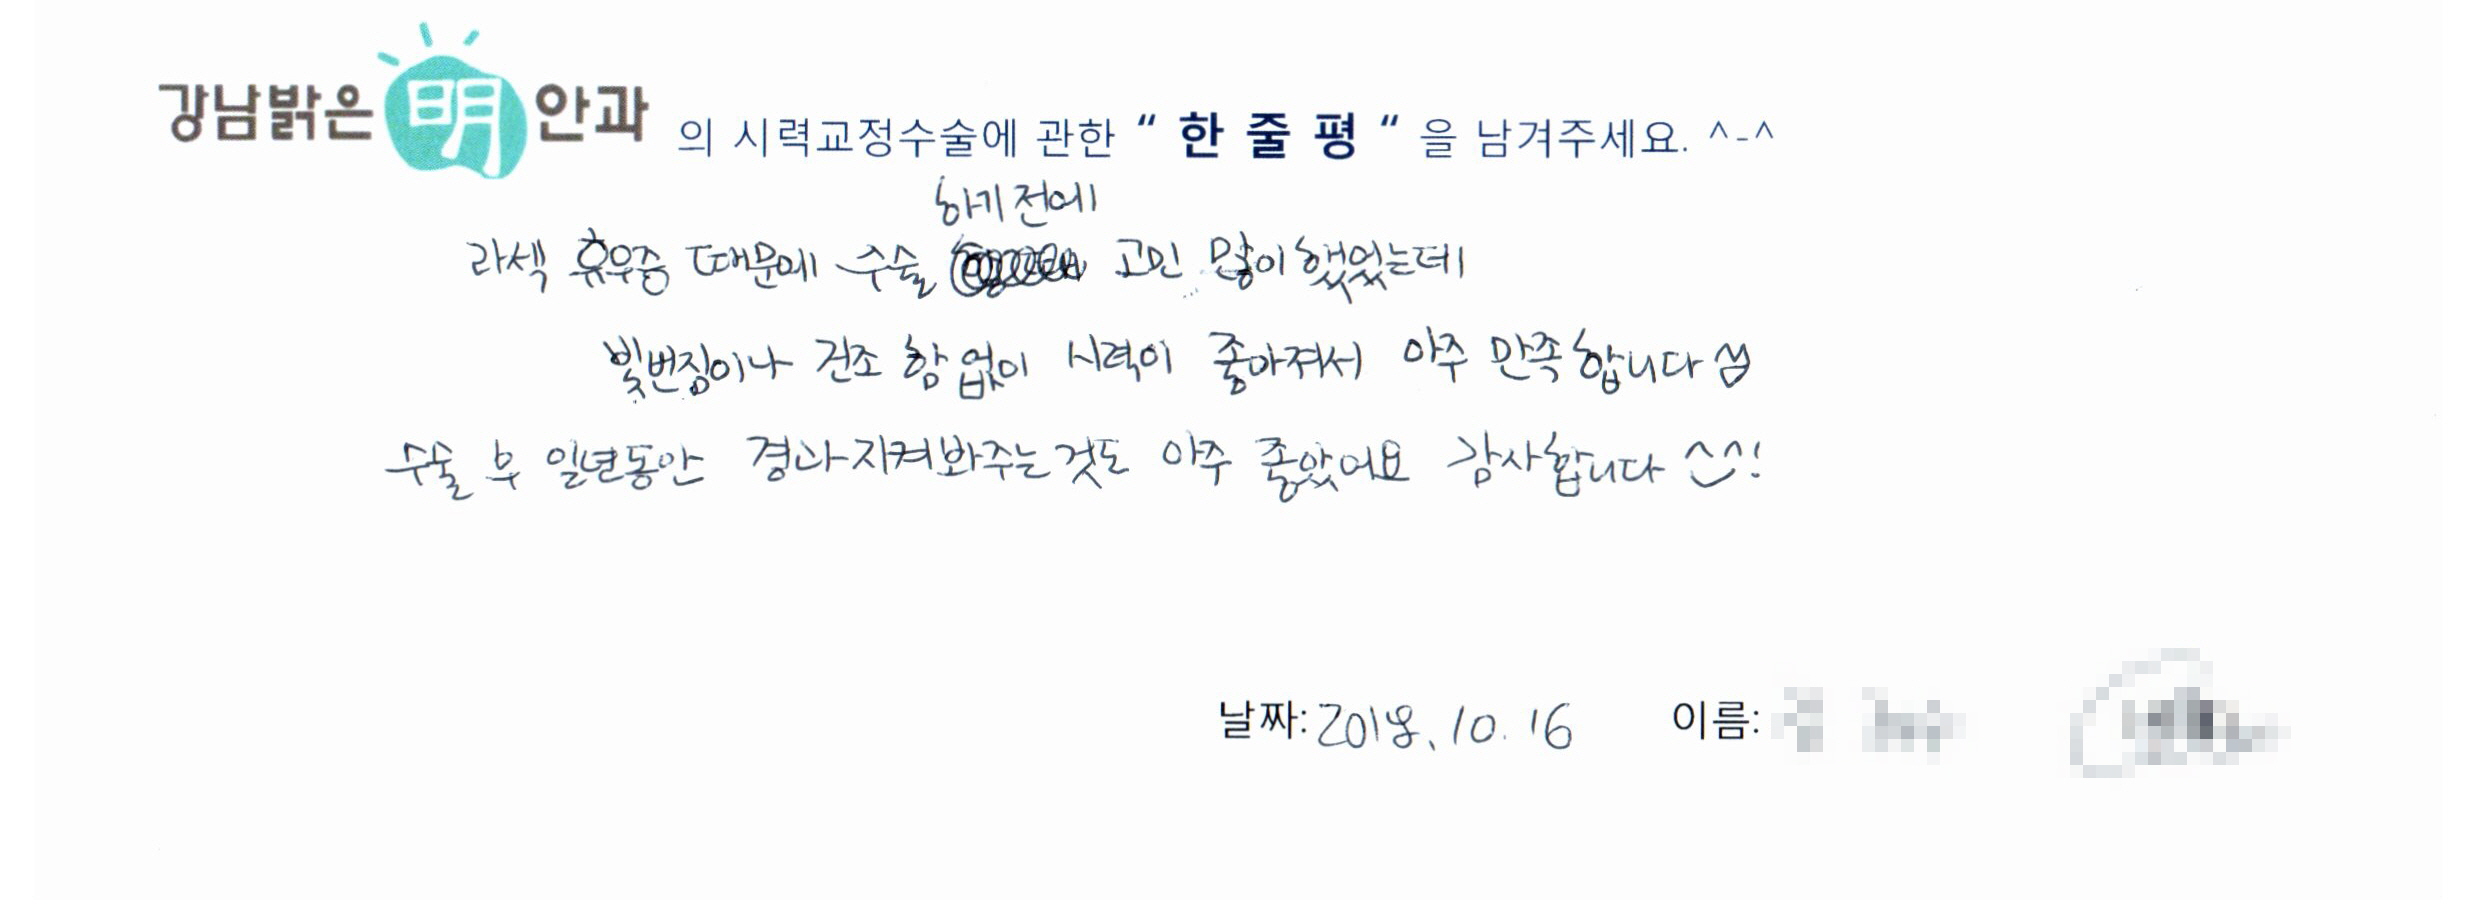 강남밝은 明 안과 의 시력교정수술에 관한 “ 한 줄 평 “ 을 남겨주세요. ^-^
하기 전에
라섹 휴우증 때문에 수술 고민 많이 했었는데
빛번짐이나 건조함 없이 시력이 좋아져서 아주 만족합니다
수술 후 일년동안 경과 지켜봐주는것도 아주 좋았어요 감사합니다 ^^!
날짜: 2018. 10. 16 이름: